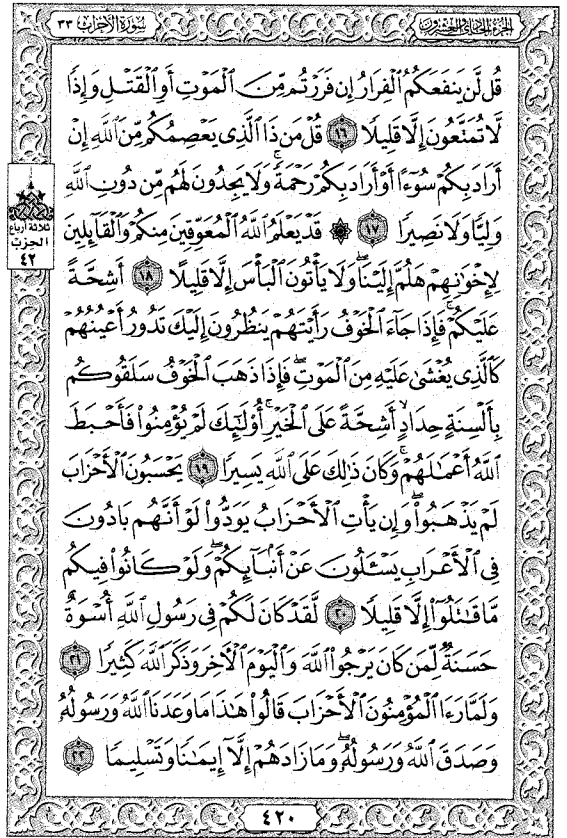 الجزء الحادي والعشرون
سورة الأحزاب ٣٣
قُل لَّن يَنفَعَكُمُ ٱلْفِرَارُ إِن فَرَرْتُم مِّنَ ٱلْمَوْتِ أَوِ ٱلْقَتْلِ وَإِذًا
لَّا تُمَتَّعُونَ إِلَّا قَلِيلًا ١٦ قُلْ مَن ذَا ٱلَّذِى يَعْصِمُكُم مِّنَ ٱللَّهِ إِنْ
أَرَادَ بِكُمْ سُوٓءًا أَوْ أَرَادَ بِكُمْ رَحْمَةً ۚ وَلَا يَجِدُونَ لَهُم مِّن دُونِ ٱللَّهِ
وَلِيًّا وَلَا نَصِيرًا ١٧ ۞ قَدْ يَعْلَمُ ٱللَّهُ ٱلْمُعَوِّقِينَ مِنكُمْ وَٱلْقَآئِلِينَ
لِإِخْوَٰنِهِمْ هَلُمَّ إِلَيْنَا ۖ وَلَا يَأْتُونَ ٱلْبَأْسَ إِلَّا قَلِيلًا ١٨ أَشِحَّةً
عَلَيْكُمْ ۖ فَإِذَا جَآءَ ٱلْخَوْفُ رَأَيْتَهُمْ يَنظُرُونَ إِلَيْكَ تَدُورُ أَعْيُنُهُمْ
كَٱلَّذِى يُغْشَىٰ عَلَيْهِ مِنَ ٱلْمَوْتِ ۖ فَإِذَا ذَهَبَ ٱلْخَوْفُ سَلَقُوكُم
بِأَلْسِنَةٍ حِدَادٍ أَشِحَّةً عَلَى ٱلْخَيْرِ ۚ أُو۟لَٰٓئِكَ لَمْ يُؤْمِنُوا۟ فَأَحْبَطَ
ٱللَّهُ أَعْمَٰلَهُمْ ۚ وَكَانَ ذَٰلِكَ عَلَى ٱللَّهِ يَسِيرًا ١٩ يَحْسَبُونَ ٱلْأَحْزَابَ
لَمْ يَذْهَبُوا۟ ۖ وَإِن يَأْتِ ٱلْأَحْزَابُ يَوَدُّوا۟ لَوْ أَنَّهُم بَادُونَ
فِى ٱلْأَعْرَابِ يَسْـَٔلُونَ عَنْ أَنۢبَآئِكُمْ ۖ وَلَوْ كَانُوا۟ فِيكُم
مَّا قَٰتَلُوٓا۟ إِلَّا قَلِيلًا ٢٠ لَّقَدْ كَانَ لَكُمْ فِى رَسُولِ ٱللَّهِ أُسْوَةٌ
حَسَنَةٌ لِّمَن كَانَ يَرْجُوا۟ ٱللَّهَ وَٱلْيَوْمَ ٱلْءَاخِرَ وَذَكَرَ ٱللَّهَ كَثِيرًا ٢١
وَلَمَّا رَءَا ٱلْمُؤْمِنُونَ ٱلْأَحْزَابَ قَالُوا۟ هَٰذَا مَا وَعَدَنَا ٱللَّهُ وَرَسُولُهُۥ
وَصَدَقَ ٱللَّهُ وَرَسُولُهُۥ ۚ وَمَا زَادَهُمْ إِلَّآ إِيمَٰنًا وَتَسْلِيمًا ٢٢
ثلاثة أرباع
الحزب
٤٢
٤٢٠